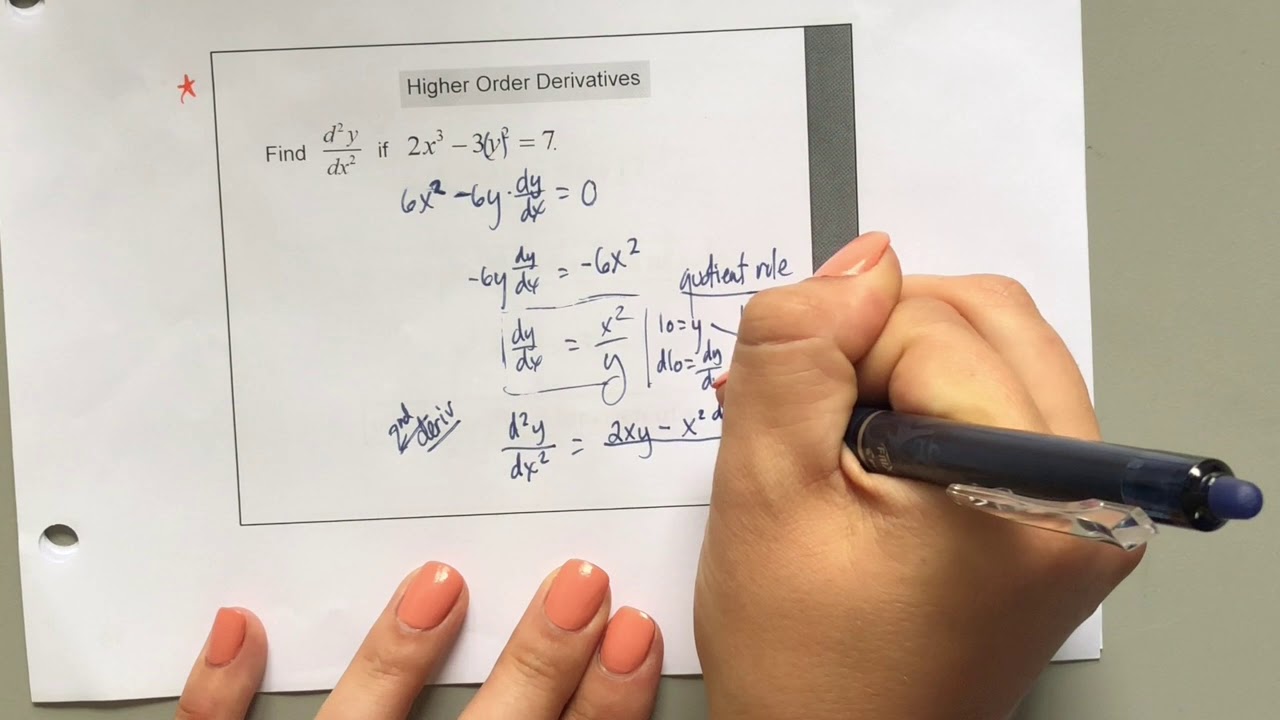 Higher Order Derivatives
Find d²y/dx² if 2x³ − 3(y)² = 7.
6x² − 6y · dy/dx = 0
-6y dy/dx = -6x²
quotient rule
dy/dx = x²/y
lo = y
dlo = dy/d
2nd deriv
d²y/dx² = 2xy − x² d